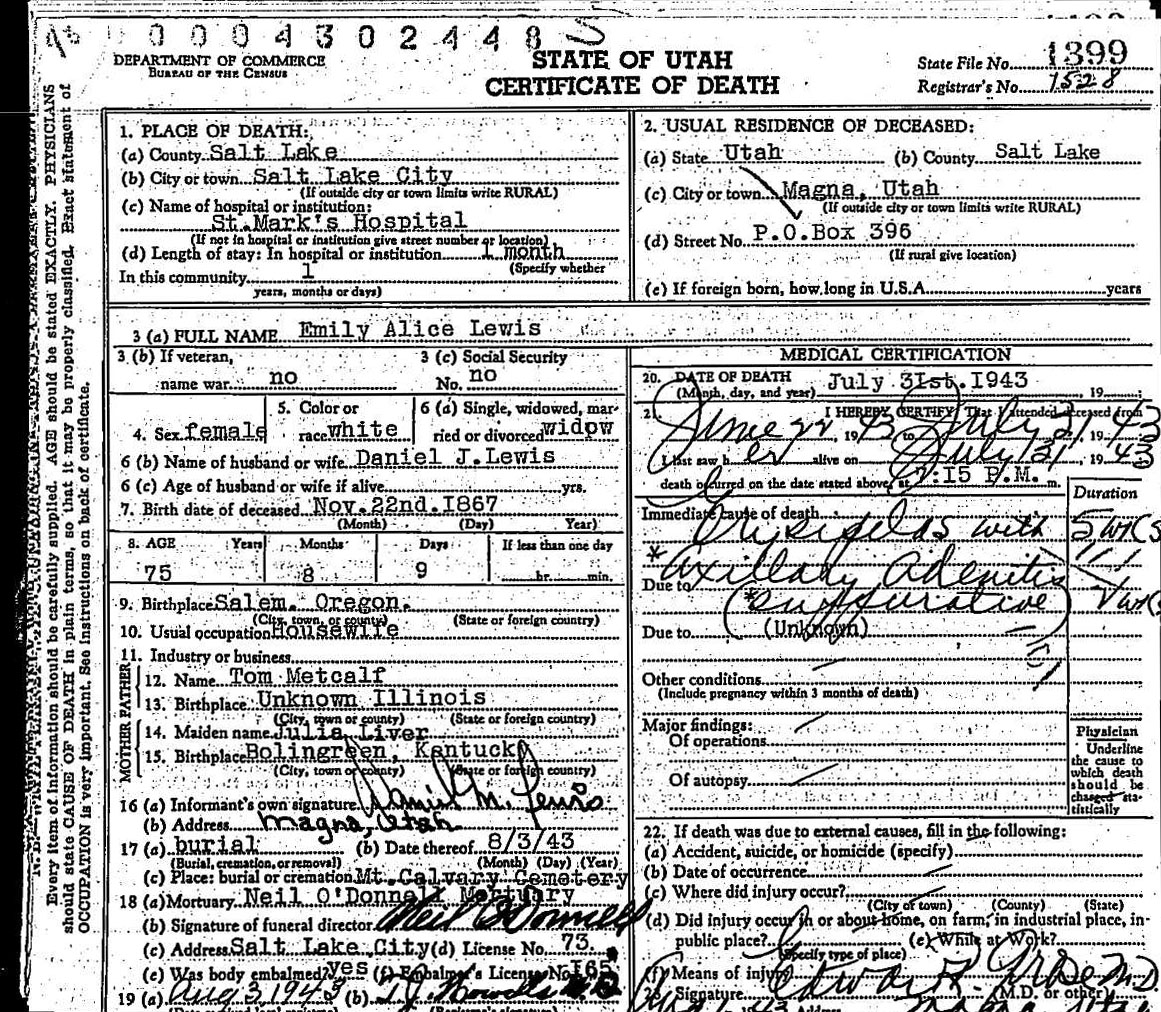 0 0 0 0 4 3 0 2 4 4 8
DEPARTMENT OF COMMERCE
BUREAU OF THE CENSUS
STATE OF UTAH
CERTIFICATE OF DEATH
State File No. 1399
Registrar's No. 1528
Every item of information should be carefully supplied. AGE should be stated EXACTLY. PHYSICIANS
should state CAUSE OF DEATH in plain terms, so that it may be properly classified. Exact statement of
OCCUPATION is very important. See instructions on back of certificate.
1. PLACE OF DEATH:
(a) County Salt Lake
(b) City or town Salt Lake City
(If outside city or town limits write RURAL)
(c) Name of hospital or institution:
St.Mark's Hospital
(If not in hospital or institution give street number or location)
(d) Length of stay: In hospital or institution 1 month
(Specify whether
In this community 1
years, months or days)
2. USUAL RESIDENCE OF DECEASED:
(a) State Utah (b) County Salt Lake
(c) City or town Magna, Utah
(If outside city or town limits write RURAL)
(d) Street No. P.O.Box 396
(If rural give location)
(e) If foreign born, how long in U.S.A. years
3 (a) FULL NAME Emily Alice Lewis
3 (b) If veteran,
name war no
3 (c) Social Security
No. no
4. Sex female
5. Color or
race white
6 (a) Single, widowed, mar-
ried or divorced widow
6 (b) Name of husband or wife Daniel J.Lewis
6 (c) Age of husband or wife if alive yrs.
7. Birth date of deceased Nov.22nd.I867
(Month) (Day) Year)
8. AGE Years Months Days If less than one day
75 8 9 hr. min.
9. Birthplace Salem. Oregon.
(City, town, or county) (State or foreign country)
10. Usual occupation Housewife
11. Industry or business
FATHER
12. Name Tom Metcalf
13. Birthplace Unknown Illinois
(City, town or county) (State or foreign country)
MOTHER
14. Maiden name Julia Liver
15. Birthplace Bolingreen, Kentucky
(City, town or county) (State or foreign country)
16 (a) Informant's own signature Daniel M. Lewis
(b) Address Magna, Utah
17 (a) burial (b) Date thereof 8/3/43
(Burial, cremation, or removal) (Month) (Day) (Year)
(c) Place: burial or cremation Mt.Calvary Cemetery
18 (a) Mortuary Neil O'Donnell Mortuary
(b) Signature of funeral director Neil O'Donnell
(c) Address Salt Lake City (d) License No. 73.
(e) Was body embalmed? yes (f) Embalmer's License No. I65
19 (a) Aug 3, 1943 (b)
MEDICAL CERTIFICATION
20. DATE OF DEATH July 3Ist.I943
(Month, day, and year) , 19
21. I HEREBY CERTIFY, That I attended deceased from
June 22, 1943 to July 31, 1943
I last saw her alive on July 31, 1943
death occurred on the date stated above, at 7:15 P.M. m.
Duration
Immediate cause of death
Erysipelas with 5 wks
* Axillary Adenitis
Due to (*suppurative)
Due to (Unknown)
Other conditions
(Include pregnancy within 3 months of death)
Major findings:
Of operations
Of autopsy
Physician
Underline
the cause to
which death
should be
charged sta-
tistically
22. If death was due to external causes, fill in the following:
(a) Accident, suicide, or homicide (specify)
(b) Date of occurrence
(c) Where did injury occur?
(City of town) (County) (State)
(d) Did injury occur in or about home, on farm, in industrial place, in-
public place? (e) While at Work?
(Specify type of place)
(f) Means of injury
Signature Edward M.D.
(M.D. or other)